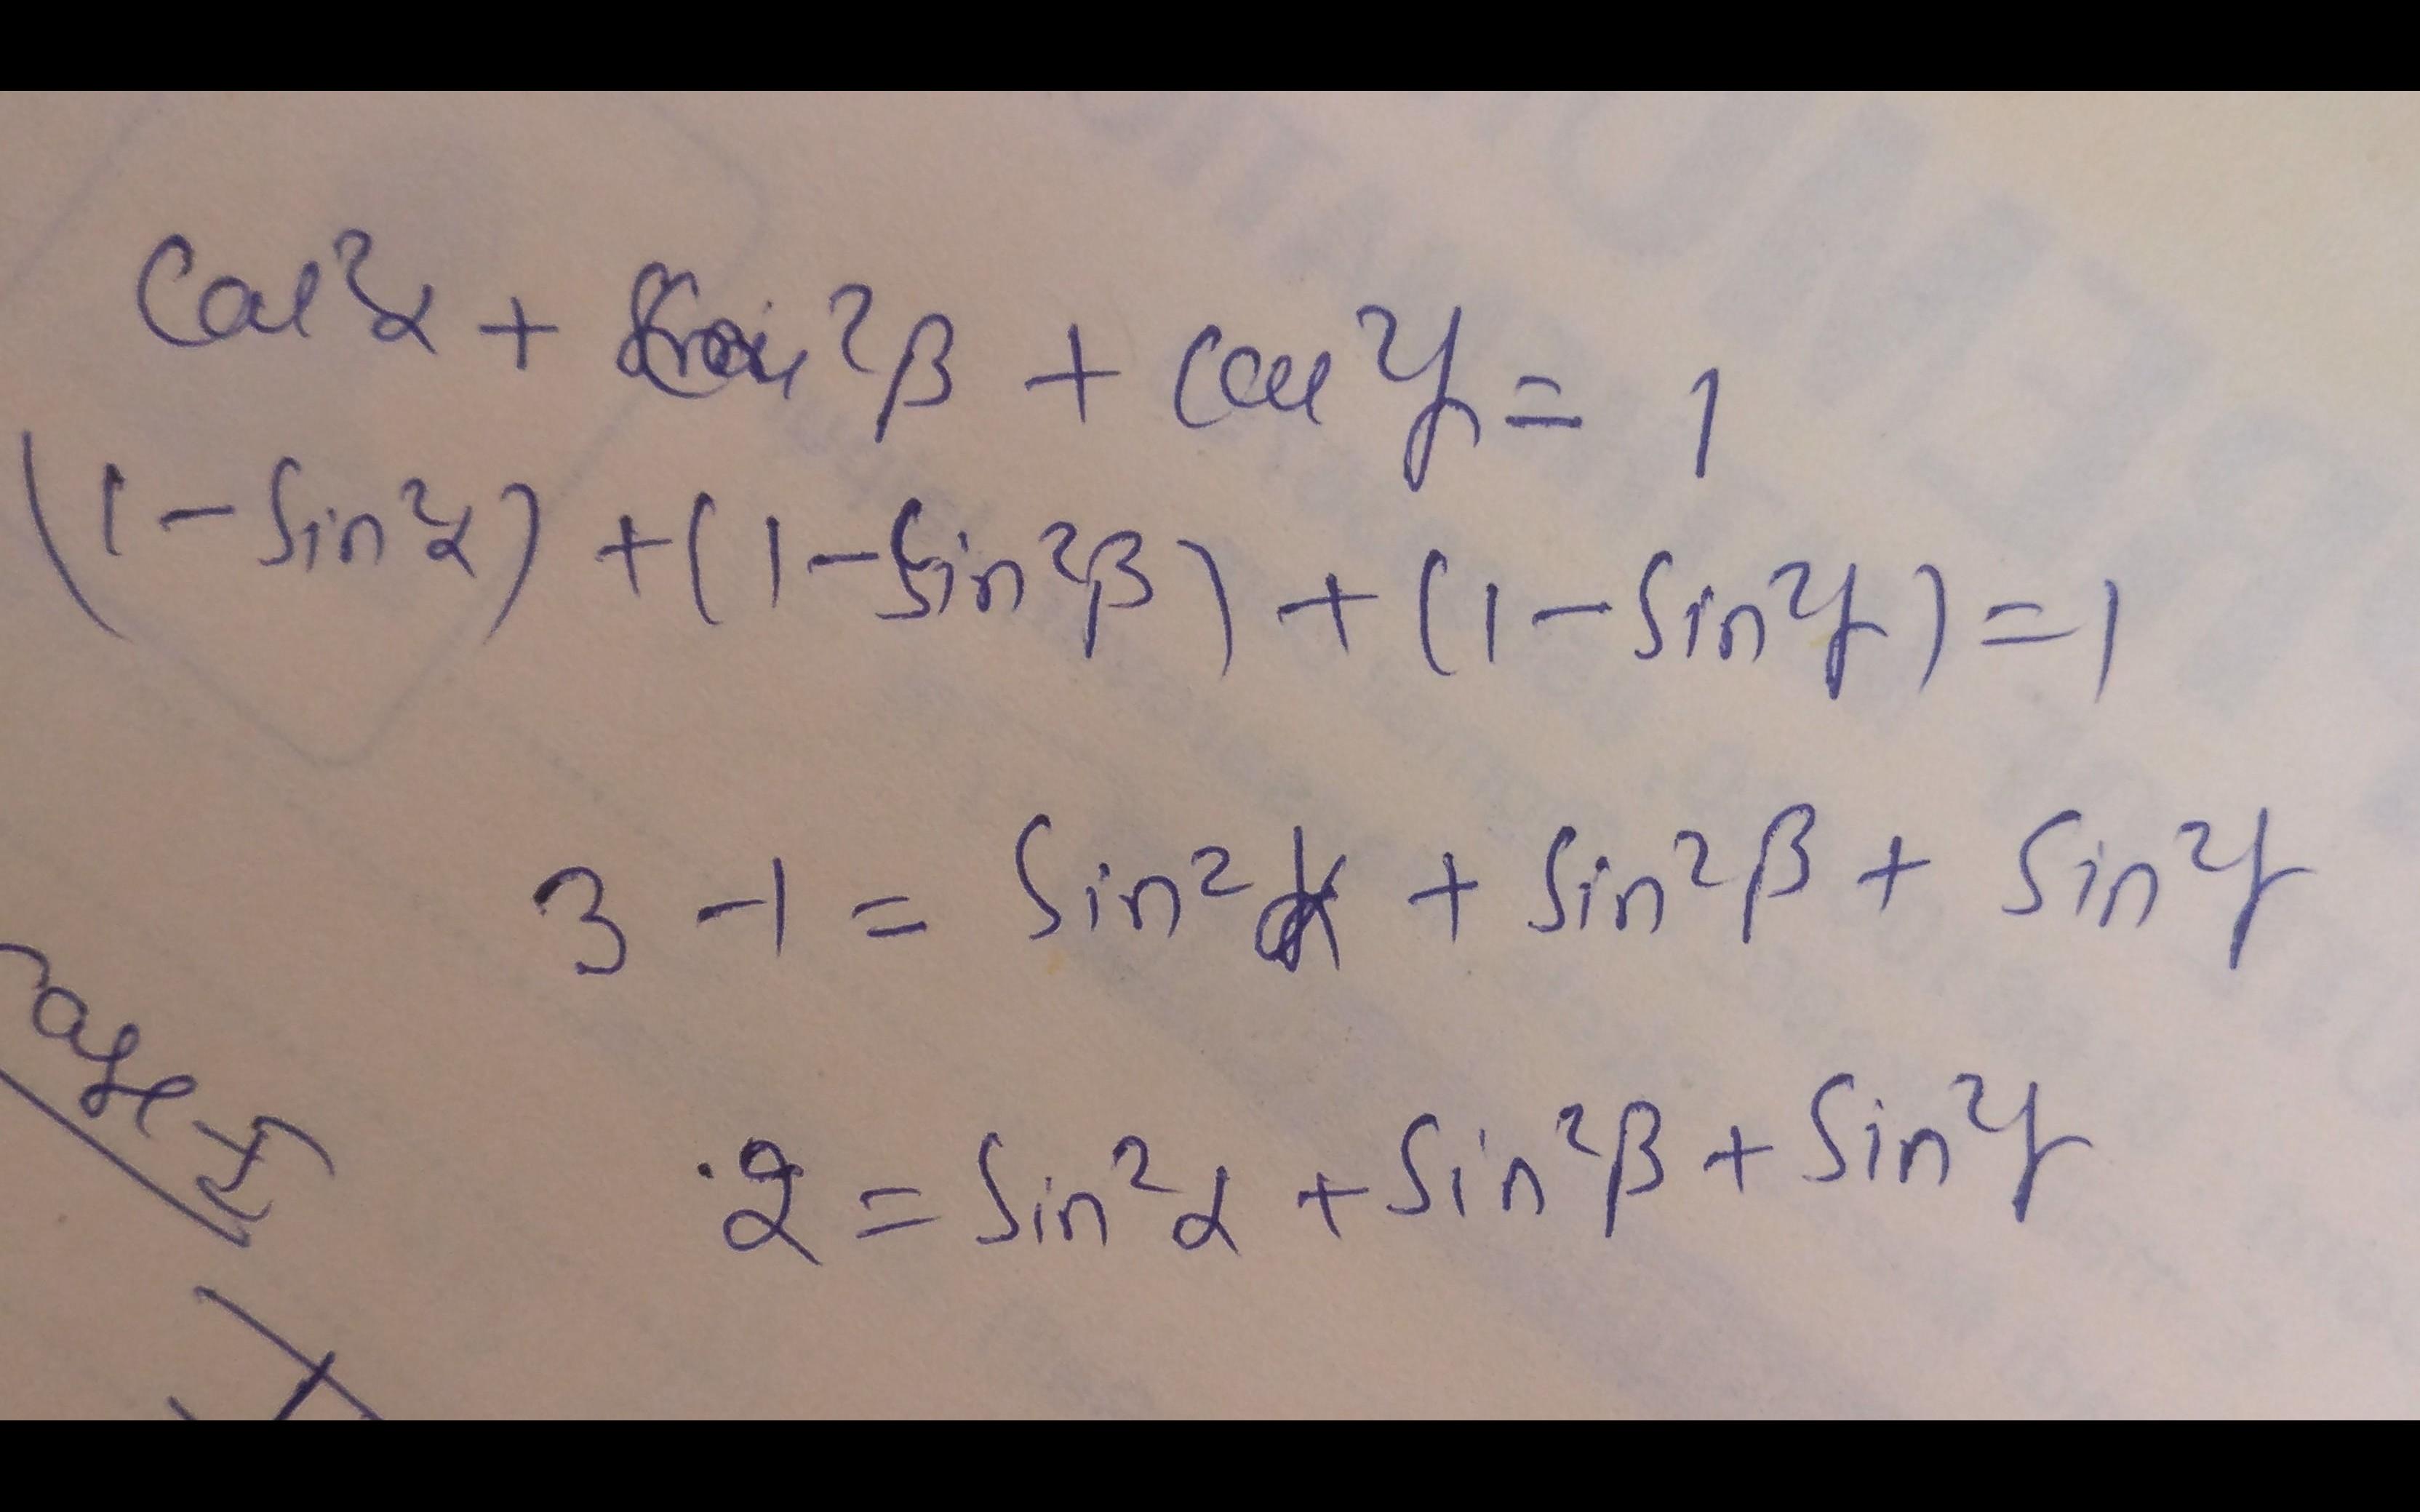 Cos²α + Cos²β + Cos²γ = 1
(1 - Sin²α) + (1 - Sin²β) + (1 - Sin²γ) = 1
3 - 1 = Sin²α + Sin²β + Sin²γ
2 = Sin²α + Sin²β + Sin²γ